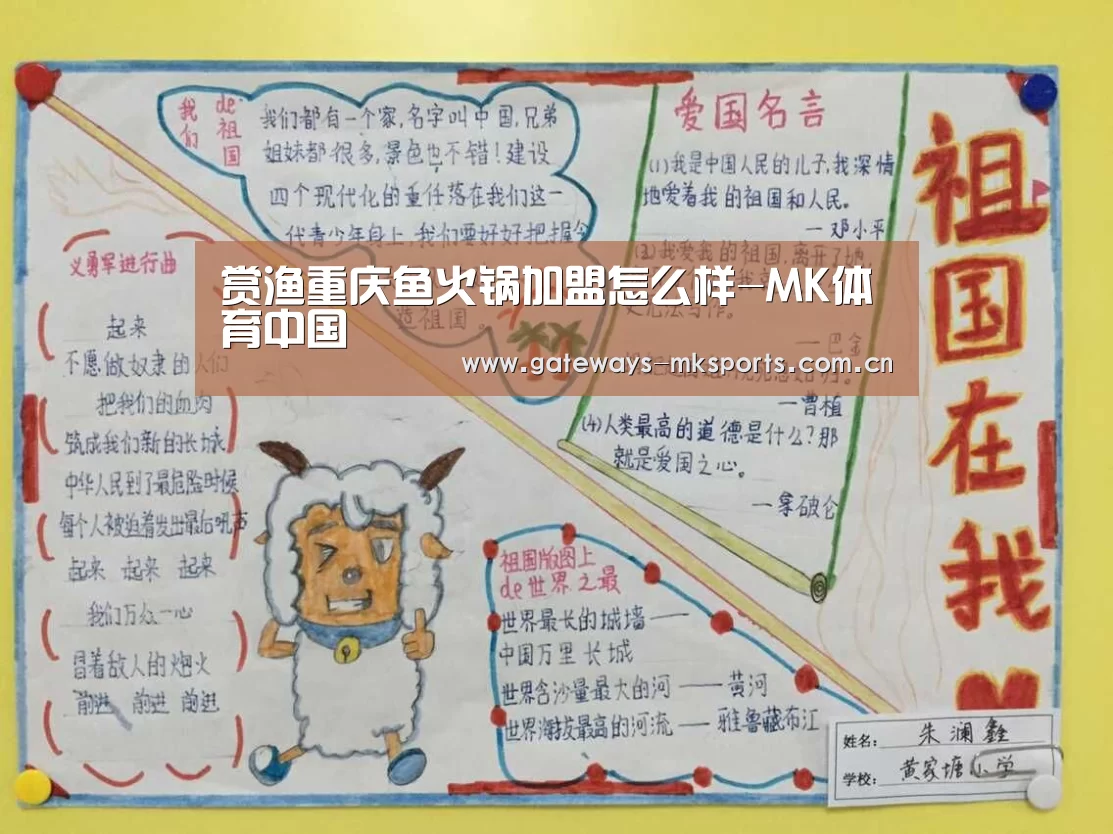 我们
de祖国
我们都有一个家,名字叫中国,兄弟
姐妹都很多,景色也不错!建设
四个现代化的重任落在我们这一
代青少年身上,我们要好好把握
造祖国。
爱国名言
(1)我是中国人民的儿子,我深情
地爱着我的祖国和人民。
—邓小平
我爱我的祖国,离开了她,
无法写作。
—巴金
—曹植
(4)人类最高的道德是什么?那
就是爱国之心。
—拿破仑
祖国在我
赏渔重庆鱼火锅加盟怎么样-MK体
育中国
www.gateways-mksports.com.cn
义勇军进行曲
起来
不愿做奴隶的人们
把我们的血肉
筑成我们新的长城
中华人民到了最危险时候
每个人被迫着发出最后吼声
起来 起来 起来
我们万众一心
冒着敌人的炮火
前进 前进 前进
祖国版图上
de世界之最
世界最长的城墙——
中国万里长城
世界含沙量最大的河——黄河
世界海拔最高的河流——雅鲁藏布江
姓名: 朱澜鑫
学校: 黄家塘小学